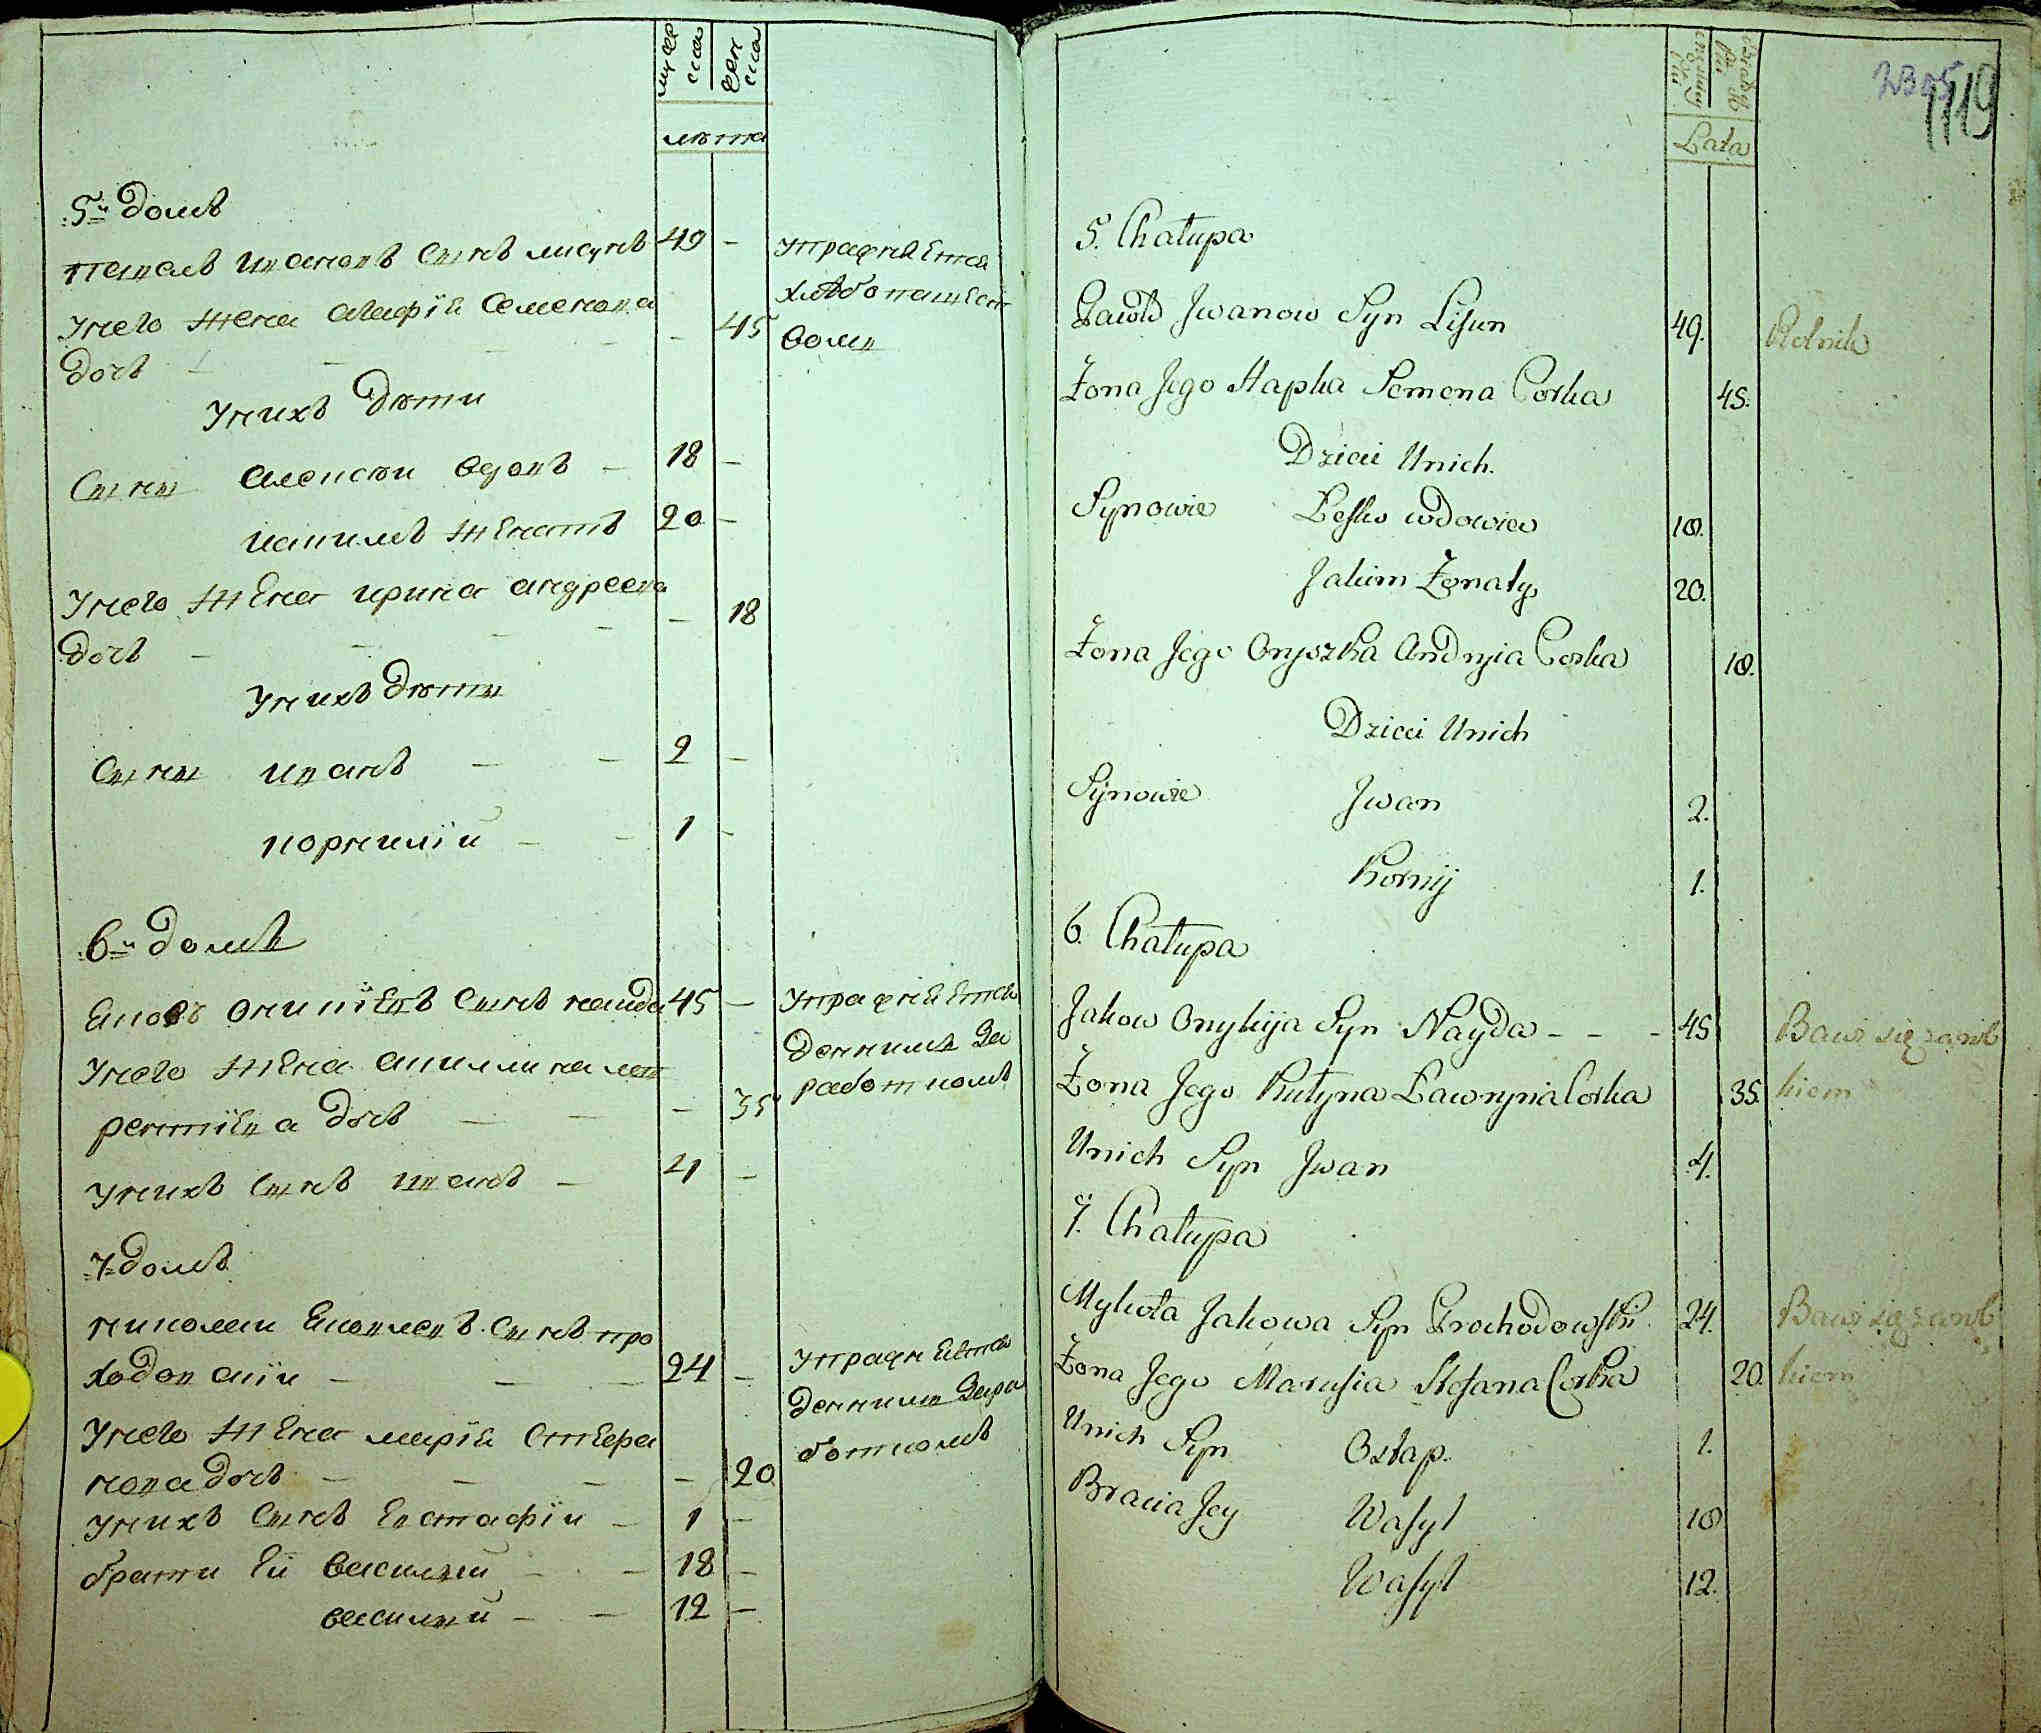 мужес
ска
женс
ска
лѣта
5й домъ
павелъ ивановъ сынъ лисунъ 49 -
упражняется
хлѣбопашест
вомъ
у него жена агафія семенова
дочь - 45
у нихъ дѣти
сыны алексѣй вдовъ - 18 -
иакимъ женатъ 20 -
у него жена ирина андреева
дочь - 18
у нихъ дѣти
сыны иванъ - - 2 -
корнилій - - 1 -
6й домъ
яковъ оникіевъ сынъ найда 45 -
упражняется
деннимъ за
работкомъ
у него жена акилина лав
рентіева дочь - 35
у нихъ сынъ иванъ - 4 -
7 домъ
николай яковлевъ сынъ про
ходовскій - 24 -
упражняется
деннимъ зара
боткомъ
у него жена марія стефа
нова дочь - 20
у нихъ сынъ евстафій - 1 -
брати ей василий - 18 -
василий - 12 -
Lata
119
5. Chałupa
Pawło Jwanow Syn Lisun 49. Rolnik
Żona Jego Hapka Semena Corka 45.
Dzieci Unich.
Synowie Leśko wdowiec 18.
Jakim Żonaty 20.
Żona Jego Oryszka Andryia Corka 18.
Dzieci Unich
Synowie Jwan 2.
Kornij 1.
6. Chałupa
Jakow Onykija Syn Nayda - - - 45 Bawi się zarob
Żona Jego Kulyna Ławryna Corka 35. kiem
Unich Syn Jwan 4.
7. Chałupa
Mykoła Jakowa Syn Prochodowski 24. Bawi się zarob
Żona Jego Marusia Stefana Corka 20. kiem
Unich Syn Ostap. 1.
Bracia Jey Wasyl 18
Wasyl 12.